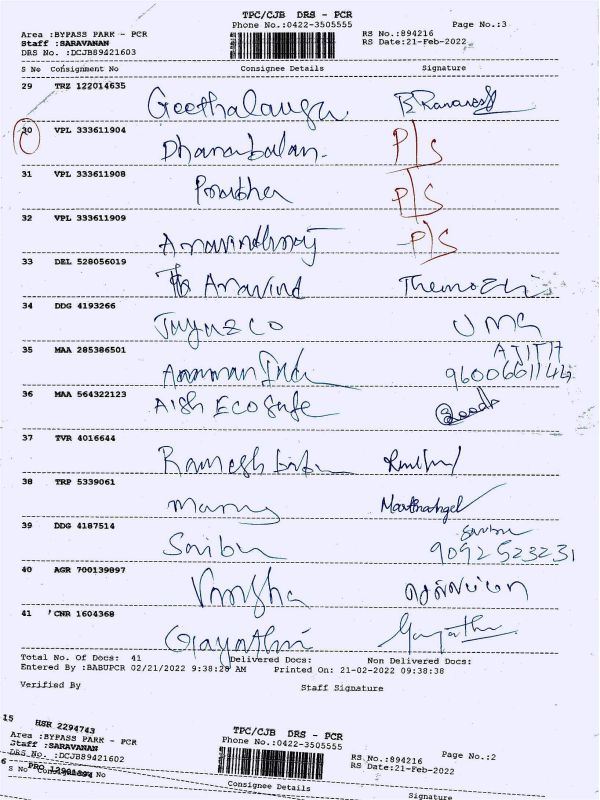 TPC/CJB DRS - PCR
Phone No.:0422-3505555 Page No.:3
Area :BYPASS PARK - PCR RS No.:894216
Staff :SARAVANAN RS Date:21-Feb-2022
DRS No. :DCJB89421603
S No Consignment No Consignee Details Signature
29 TRZ 122014635
30 VPL 333611904 Dhanabalan. P/S
31 VPL 333611908 Prabha P/S
32 VPL 333611909 Aravindhraj P/S
33 DEL 528056019 Aravind Themozhi
34 DDG 4193266 UMA
35 MAA 285386501 AJITH
9600661144
36 MAA 564322123 Aish Ecosafe
37 TVR 4016644 Ramesh babu
38 TRP 5339061
39 DDG 4187514 Saribu
9092523231
40 AGR 700139897
41 CNR 1604368 Gayathri Gayathri
Total No. Of Docs: 41 Delivered Docs: Non Delivered Docs:
Entered By :BABUPCR 02/21/2022 9:38:28 AM Printed On: 21-02-2022 09:38:38
Verified By Staff Signature
15 HSR 2294743
TPC/CJB DRS - PCR
Area :BYPASS PARK - PCR Phone No.:0422-3505555 Page No.:2
Staff :SARAVANAN RS No.:894216
DRS No. :DCJB89421602 RS Date:21-Feb-2022
S No Consignment No Consignee Details Signature